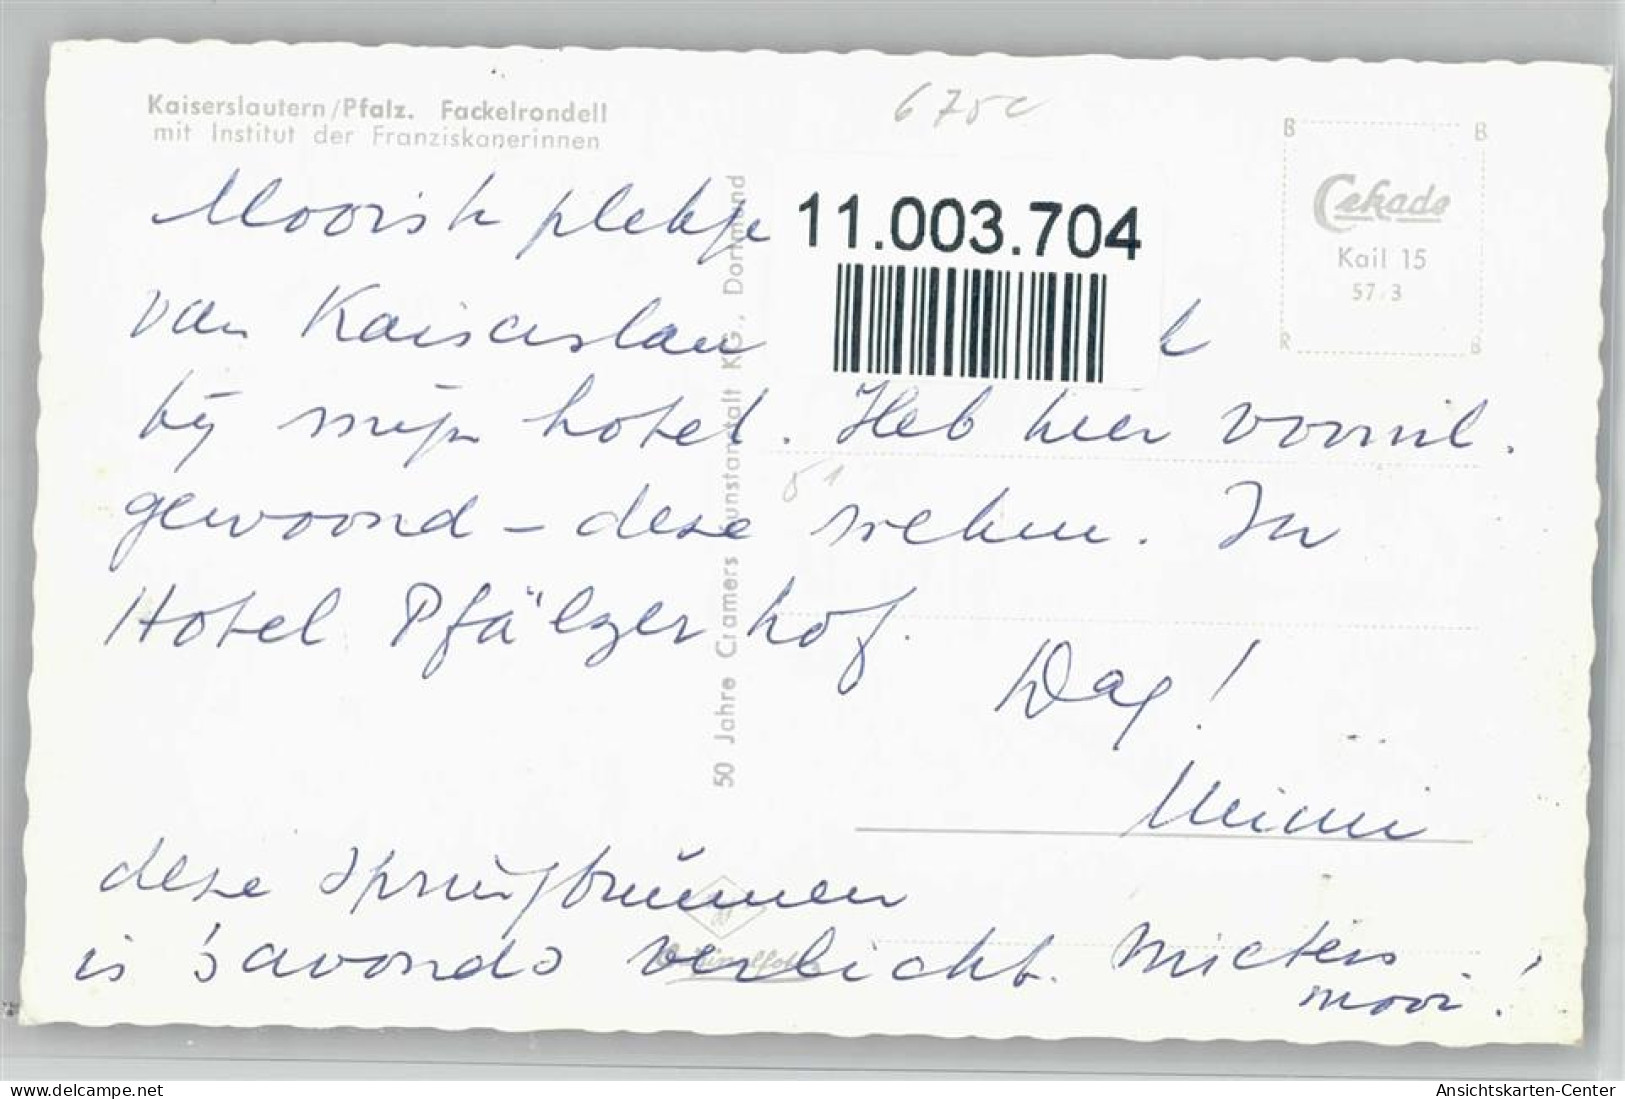 Kaiserslautern/Pfalz. Fackelrondell
mit Institut der Franziskanerinnen
675c
B B
Cekade
Kail 15
57.3
R B
11.003.704
50 Jahre Cramers Kunstanstalt KG, Dortmund
Moorsk plekje
van Kaiserslau
bij mijn hotel. Heb hier vooral.
gewoond - deze weken. In
Hotel Pfälzer hof.
51
Dag!
Mimi
deze
is 's avonds verlicht.
mooi!
Originalfoto
delcampe.net
Ansichtskarten-Center